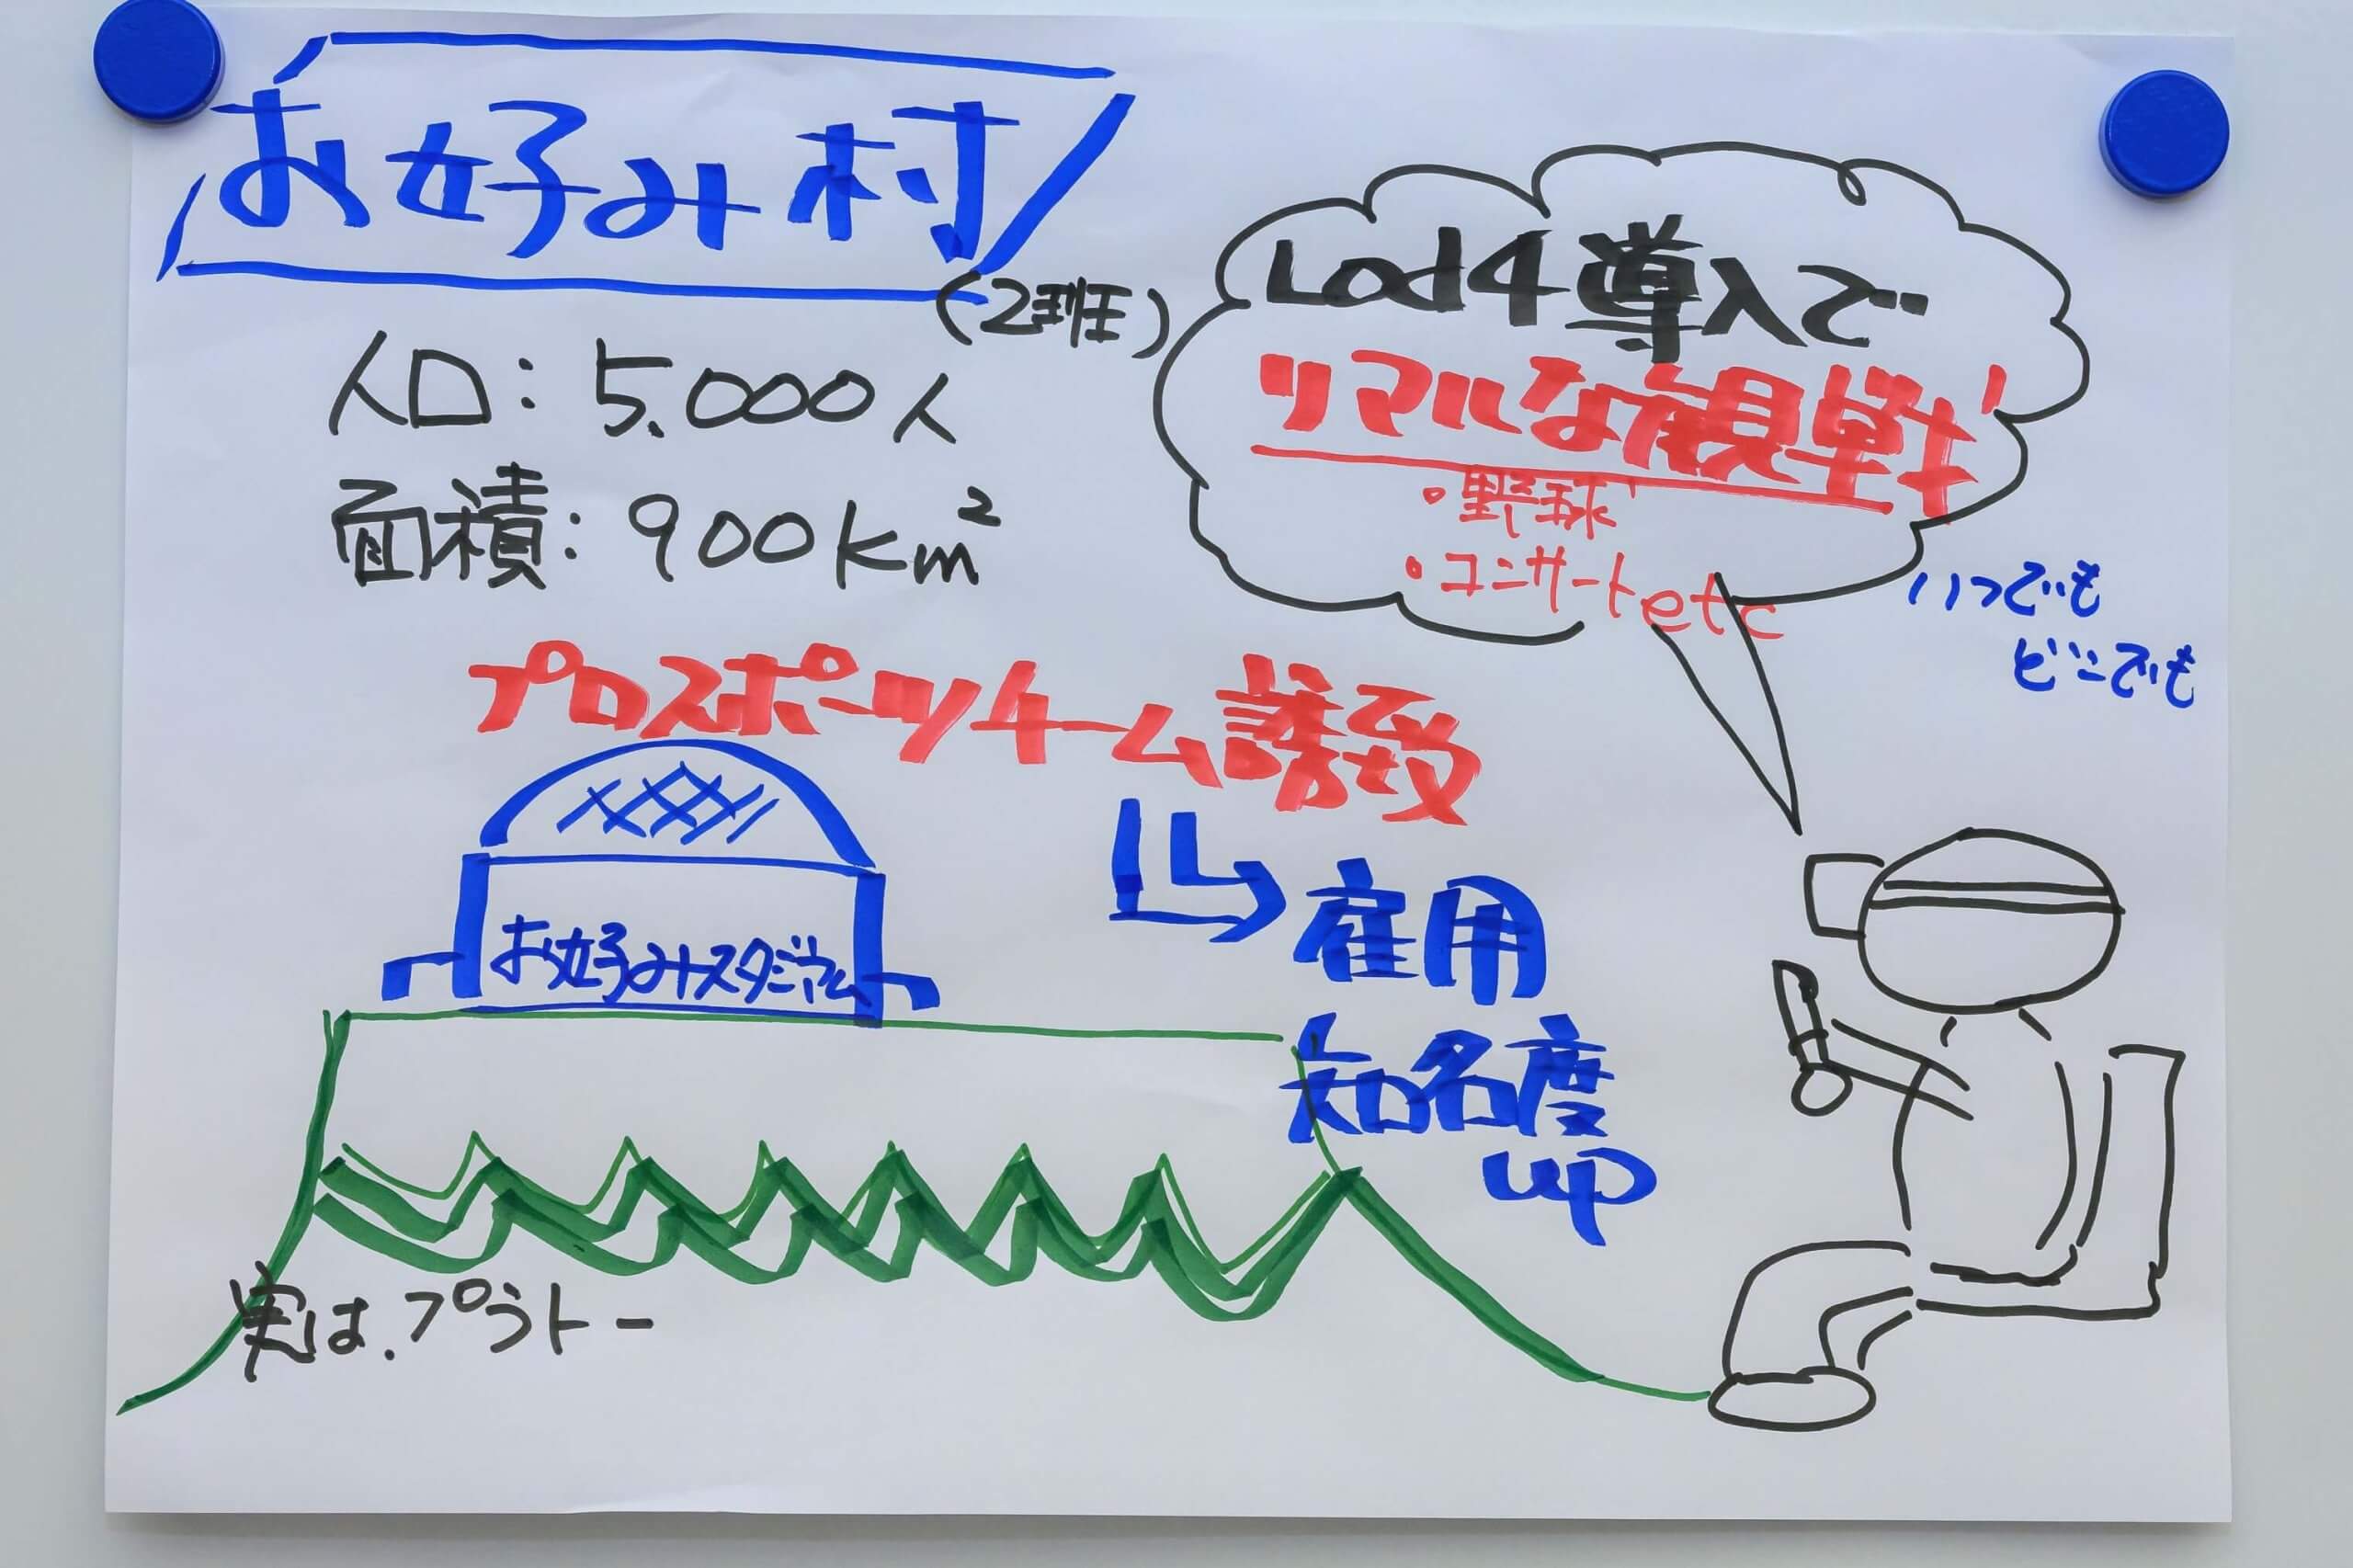 お好み村
(2班)
人口：5,000人
面積：900km²
Lod4導入で
リアルな観戦
・野球
・コンサートetc
いつでも
どこでも
プロスポーツチーム誘致
雇用
知名度
up
お好みスタジアム
実は、プラトー